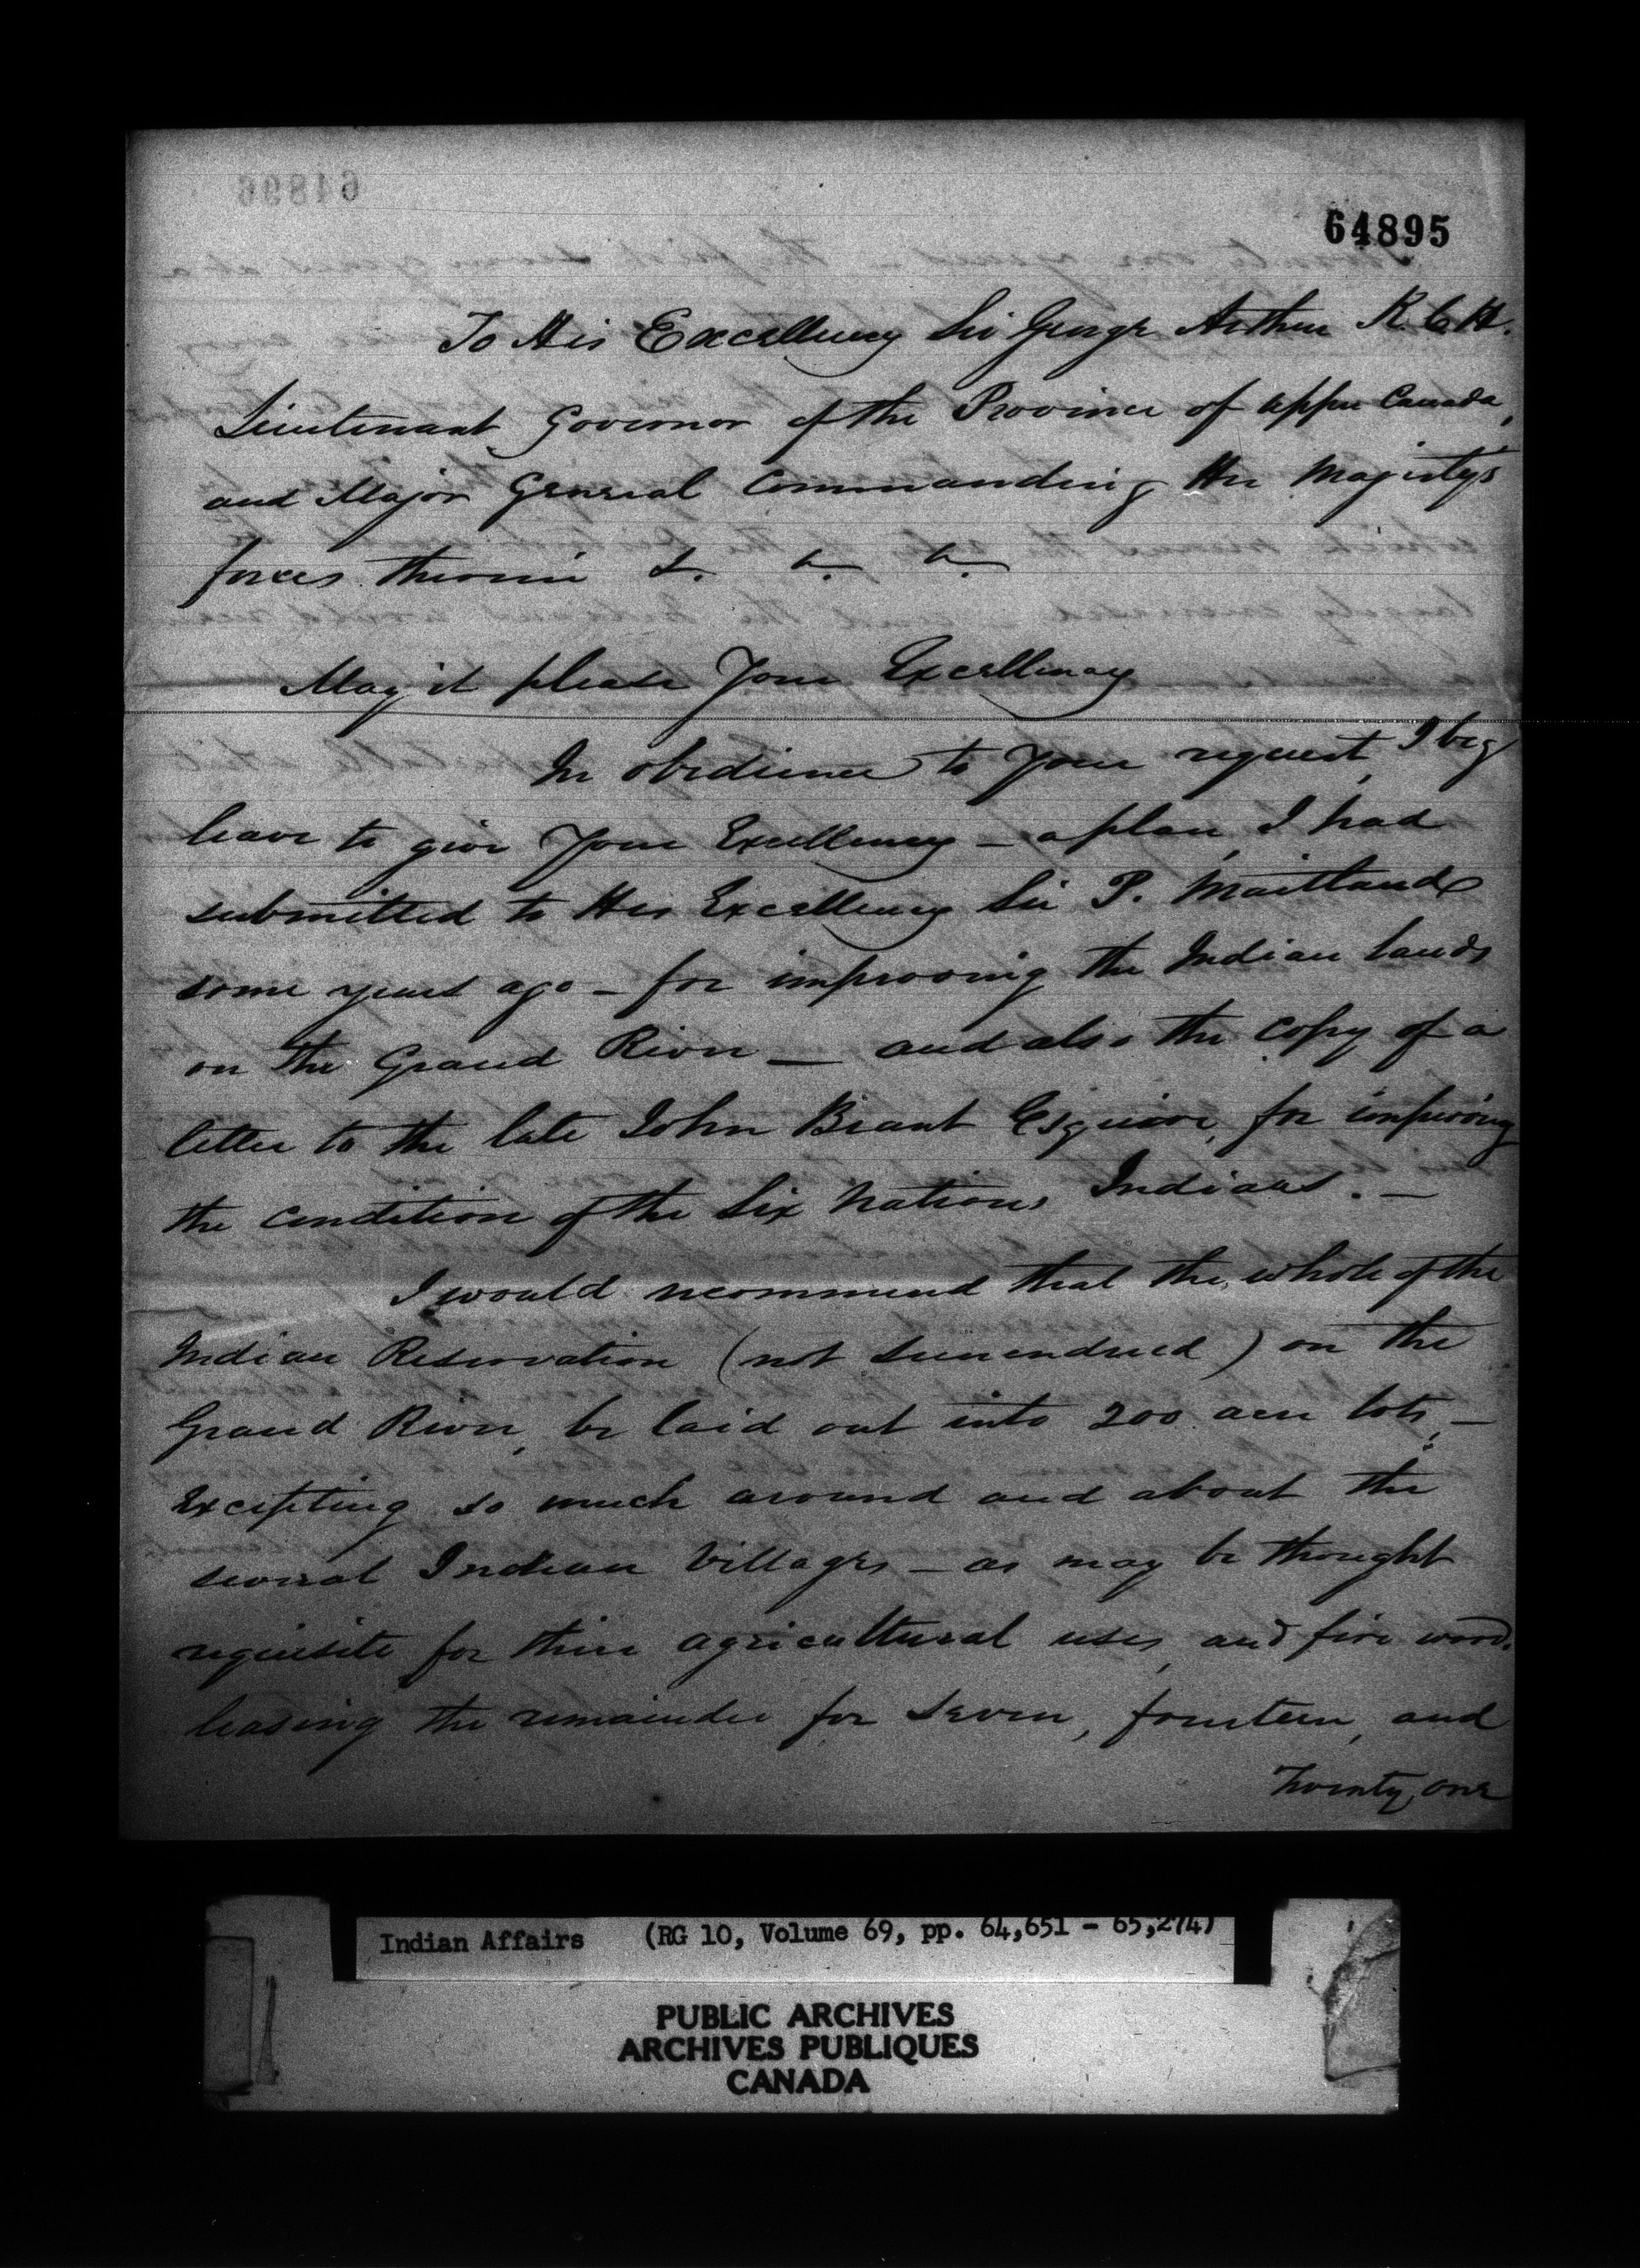 64896
64895
To His Excellency Sir George Arthur K.C.H.
Lieutenant Governor of the Province of Upper Canada,
and Major General Commanding Her Majesty's
forces therein &. &. &.
May it please Your Excellency
In obedience to Your request, I beg
leave to give Your Excellency - a plan, I had
submitted to His Excellency Sir P. Maitland
some years ago - for improving the Indian lands
on the Grand River — and also the copy of a
letter to the late John Brant Esquire, for improving
the condition of the Six Nations Indians. —
I would recommend that the whole of the
Indian Reservation (not surrendered) on the
Grand River, be laid out into 200 acre lots, —
Excepting so much around and about the
several Indian Villages - as may be thought
requisite for their agricultural uses, and fire wood.
leasing the remainder for seven, fourteen, and
Twenty one
Indian Affairs (RG 10, Volume 69, pp. 64,651 - 65,274)
PUBLIC ARCHIVES
ARCHIVES PUBLIQUES
CANADA